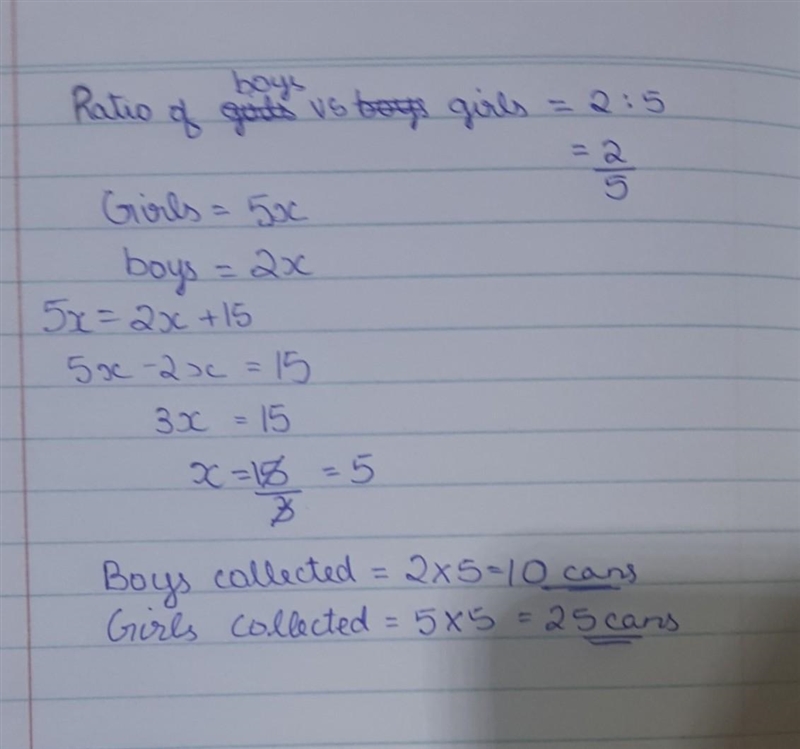 Ratio of boys vs girls = 2:5
= 2/5
Girls = 5x
boys = 2x
5x = 2x + 15
5x - 2x = 15
3x = 15
x = 15/3 = 5
Boys collected = 2x5 = 10 cans
Girls collected = 5x5 = 25 cans